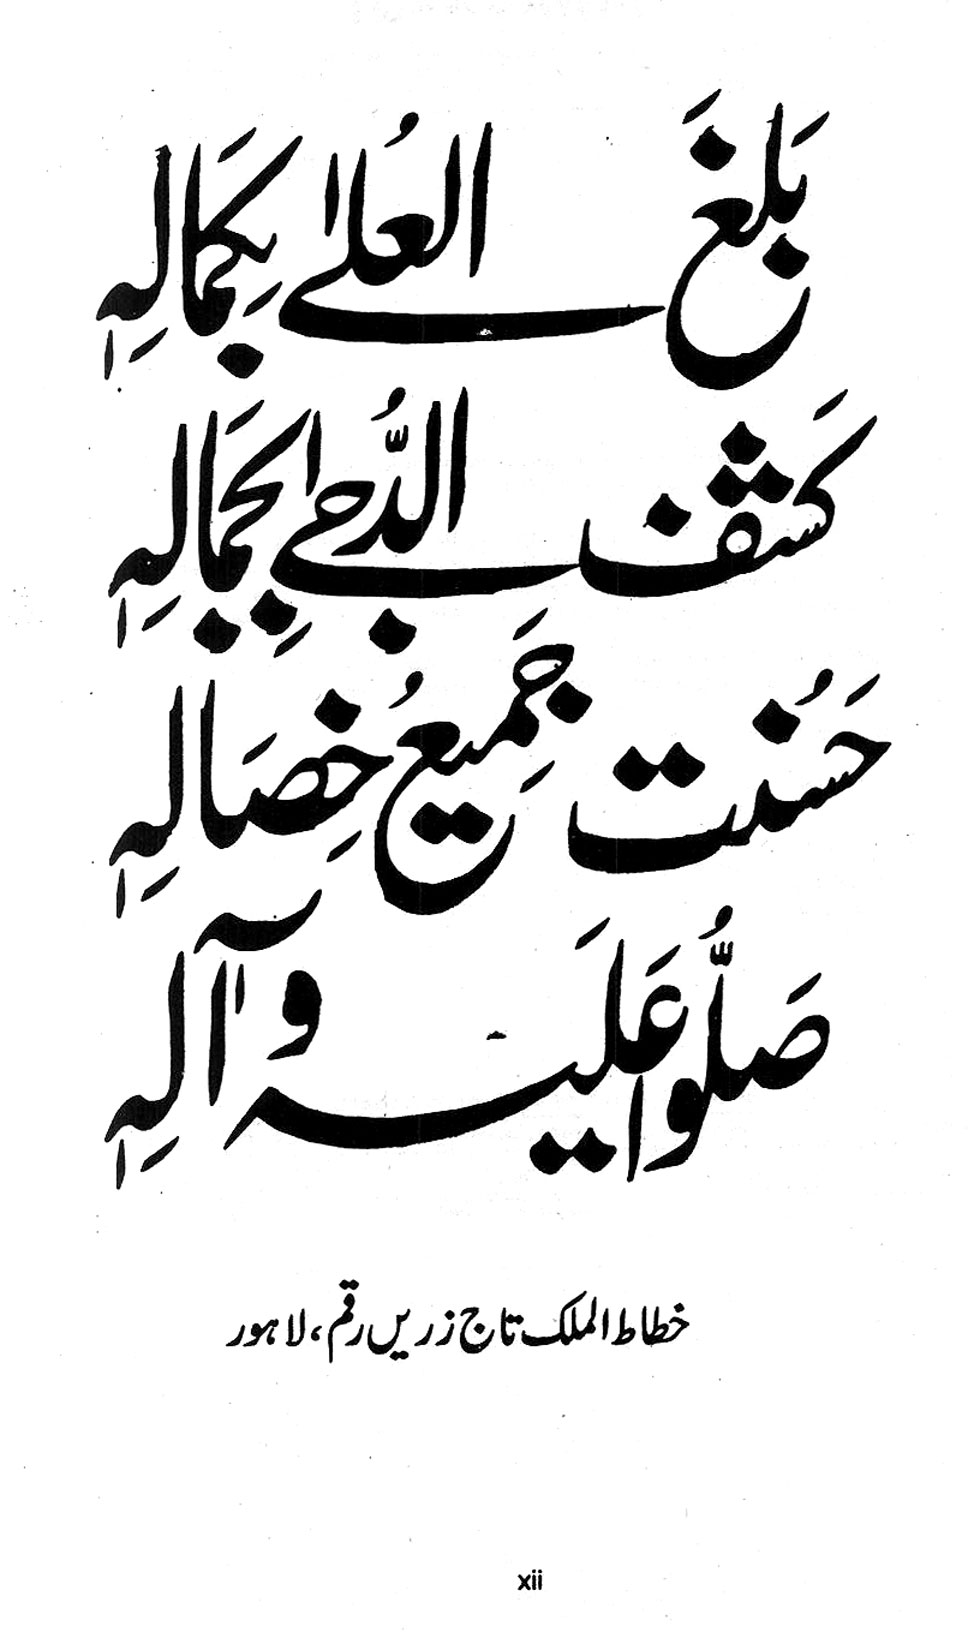 بَلَغَ العُلٰے بِكَمَالِهٖ
كَشَفَ الدُّجٰے بِجَمَالِهٖ
حَسُنَتْ جَمِيعُ خِصَالِهٖ
صَلُّوا عَلَيهِ وَآلِهٖ
خطاط الملک تاج زریں رقم، لاہور
xii